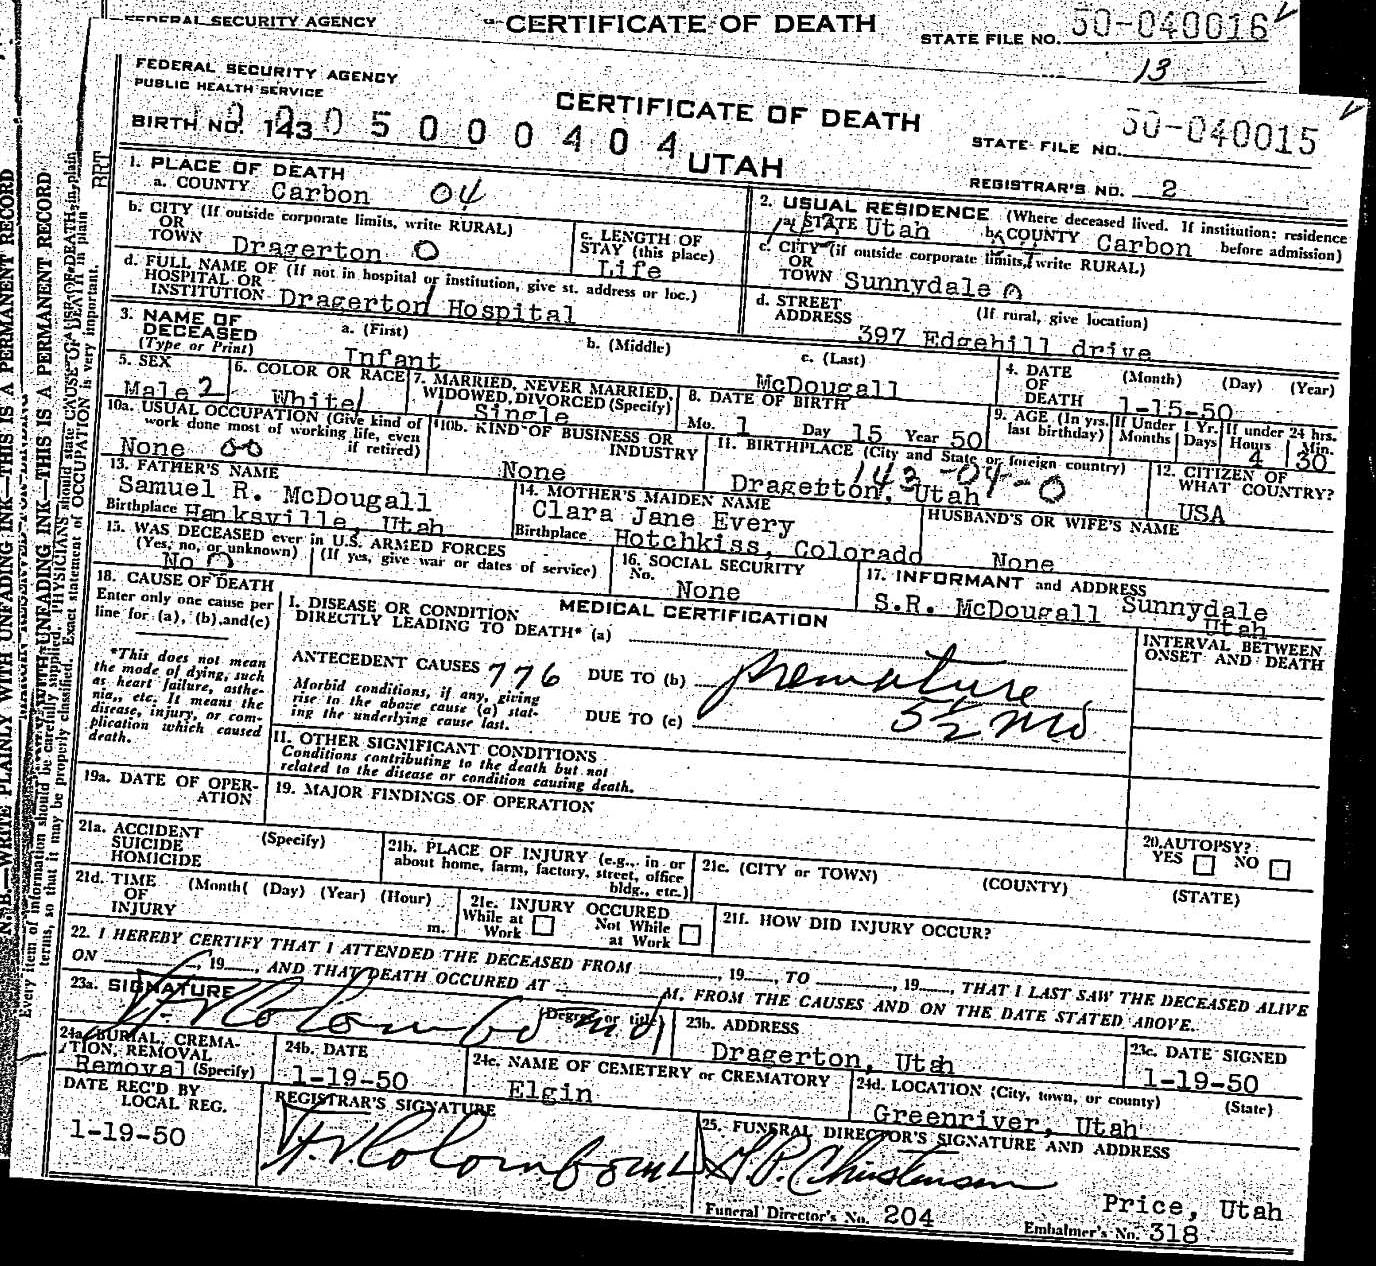 FEDERAL SECURITY AGENCY
CERTIFICATE OF DEATH
STATE FILE NO. 50-040016
13
FEDERAL SECURITY AGENCY
PUBLIC HEALTH SERVICE
CERTIFICATE OF DEATH
50-040015
STATE FILE NO.
BIRTH NO. 143 05000404
UTAH
REGISTRAR'S NO. 2
1. PLACE OF DEATH
a. COUNTY Carbon 04
2. USUAL RESIDENCE (Where deceased lived. If institution: residence before admission)
a. STATE Utah b. COUNTY Carbon
b. CITY (If outside corporate limits, write RURAL)
OR
TOWN Dragerton 0
c. LENGTH OF
STAY (this place)
Life
c. CITY (if outside corporate limits, write RURAL)
OR
TOWN Sunnydale
d. FULL NAME OF (If not in hospital or institution, give st. address or loc.)
HOSPITAL OR
INSTITUTION Dragerton Hospital
d. STREET
ADDRESS
(If rural, give location)
397 Edgehill drive
3. NAME OF
DECEASED
(Type or Print)
a. (First)
Infant
b. (Middle)
c. (Last)
McDougall
4. DATE
OF
DEATH
(Month) (Day) (Year)
1-15-50
5. SEX
Male 2
6. COLOR OR RACE
White
7. MARRIED, NEVER MARRIED,
WIDOWED, DIVORCED (Specify)
Single
8. DATE OF BIRTH
Mo. 1 Day 15 Year 50
9. AGE (In yrs.
last birthday)
If Under 1 Yr.
Months Days
If under 24 hrs.
Hours Min.
4 30
10a. USUAL OCCUPATION (Give kind of
work done most of working life, even
if retired)
None 00
10b. KIND OF BUSINESS OR
INDUSTRY
None
11. BIRTHPLACE (City and State or foreign country)
143-04-0
Dragetton, Utah
12. CITIZEN OF
WHAT COUNTRY?
USA
13. FATHER'S NAME
Samuel R. McDougall
Birthplace Hanksville, Utah
14. MOTHER'S MAIDEN NAME
Clara Jane Every
Birthplace Hotchkiss, Colorado
HUSBAND'S OR WIFE'S NAME
None
15. WAS DECEASED ever in U.S. ARMED FORCES
(Yes, no, or unknown) (If yes, give war or dates of service)
No 0
16. SOCIAL SECURITY
No.
None
17. INFORMANT and ADDRESS
S.R. McDougall Sunnydale
Utah
18. CAUSE OF DEATH
Enter only one cause per
line for (a), (b), and (c)
*This does not mean
the mode of dying, such
as heart failure, asthe-
nia,, etc. It means the
disease, injury, or com-
plication which caused
death.
MEDICAL CERTIFICATION
I. DISEASE OR CONDITION
DIRECTLY LEADING TO DEATH* (a)
ANTECEDENT CAUSES 776 DUE TO (b) premature
Morbid conditions, if any, giving
rise to the above cause (a) stat-
ing the underlying cause last.
DUE TO (c) 5½ mo
INTERVAL BETWEEN
ONSET AND DEATH
II. OTHER SIGNIFICANT CONDITIONS
Conditions contributing to the death but not
related to the disease or condition causing death.
19a. DATE OF OPER-
ATION
19. MAJOR FINDINGS OF OPERATION
20. AUTOPSY?
YES NO
21a. ACCIDENT
SUICIDE
HOMICIDE
(Specify)
21b. PLACE OF INJURY (e.g., in or
about home, farm, factory, street, office
bldg., etc.)
21c. (CITY or TOWN) (COUNTY) (STATE)
21d. TIME
OF
INJURY
(Month( (Day) (Year) (Hour)
m.
21e. INJURY OCCURED
While at
Work
Not While
at Work
21f. HOW DID INJURY OCCUR?
22. I HEREBY CERTIFY THAT I ATTENDED THE DECEASED FROM , 19 , TO , 19 , THAT I LAST SAW THE DECEASED ALIVE
ON , 19 , AND THAT DEATH OCCURED AT M. FROM THE CAUSES AND ON THE DATE STATED ABOVE.
23a. SIGNATURE
(Degree or title)
23b. ADDRESS
Dragerton, Utah
23c. DATE SIGNED
1-19-50
24a. BURIAL, CREMA-
TION, REMOVAL
Removal (Specify)
24b. DATE
1-19-50
24c. NAME OF CEMETERY or CREMATORY
Elgin
24d. LOCATION (City, town, or county) (State)
Greenriver, Utah
DATE REC'D BY
LOCAL REG.
1-19-50
REGISTRAR'S SIGNATURE
25. FUNERAL DIRECTOR'S SIGNATURE AND ADDRESS
Christensen
Price, Utah
Funeral Director's No. 204
Embalmer's No. 318